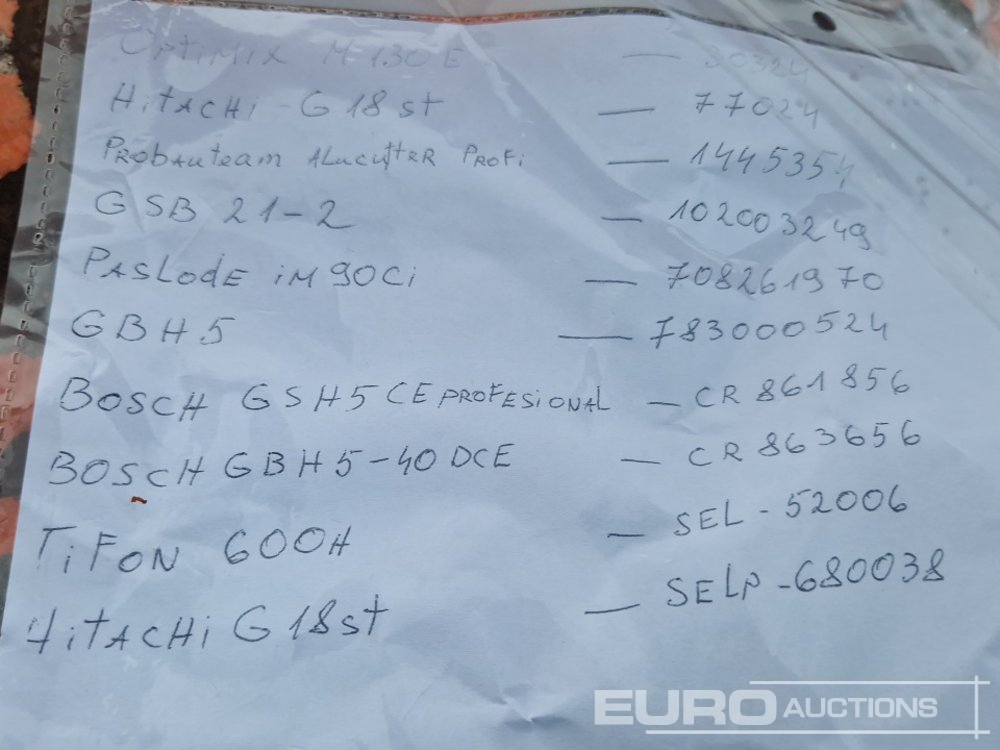 OPTIMIX M 130 E — 30324
HiTACHi - G 18 st — 77024
PROBAUteam ALUCUttER PROFi — 1445354
GSB 21-2 — 102003249
PASLOdE iM 90 Ci — 708261970
GBH5 — 783000524
BOSCH GSH5 CE PROFESIONAL — CR 861856
BOSCH GBH5-40 DCE — CR 863656
TiFON 600H — SEL - 52006
HiTACHi G18st — SELP - 680038
EURO AUCTIONS